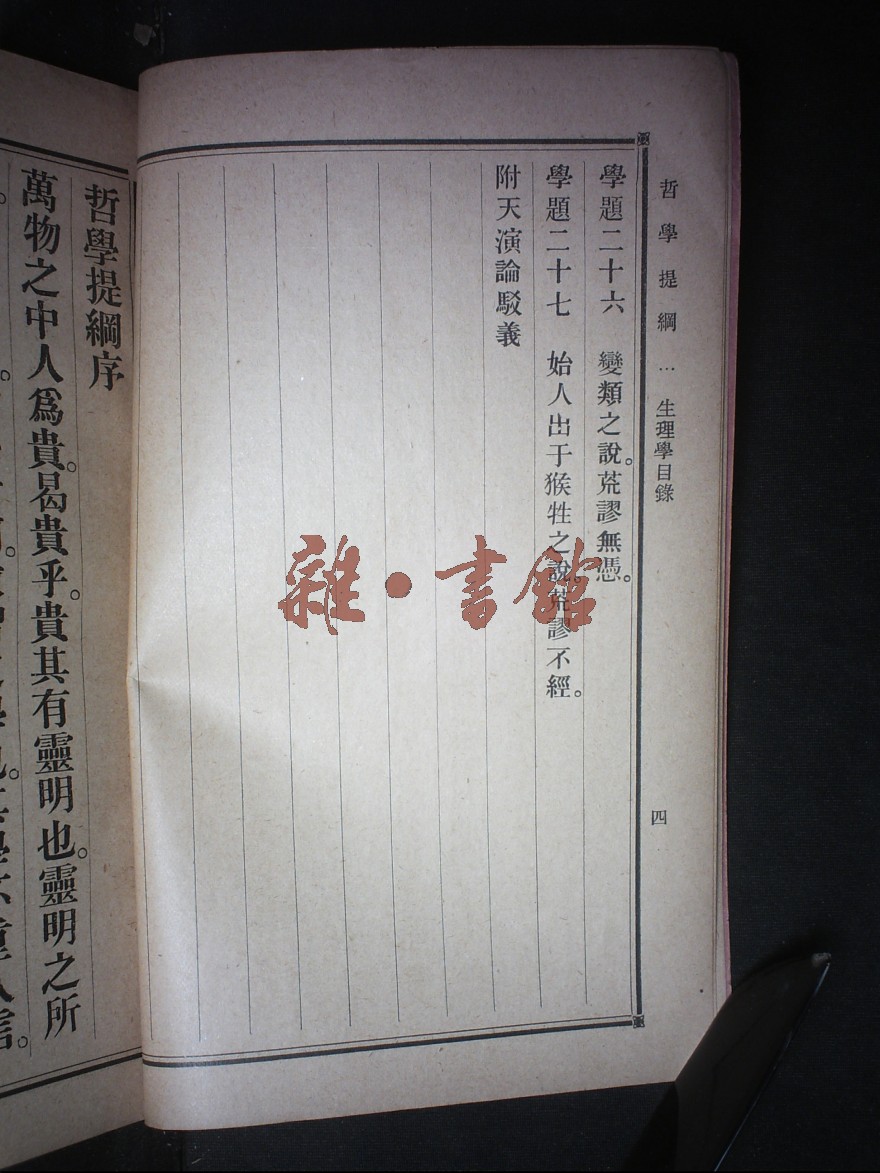 哲學提綱…生理學目錄
四
學題二十六 變類之說。荒謬無憑。
學題二十七 始人出于猴牲之說。荒謬不經。
附天演論駁義
雜·書館
哲學提綱序
萬物之中人爲貴。曷貴乎。貴其有靈明也。靈明之所